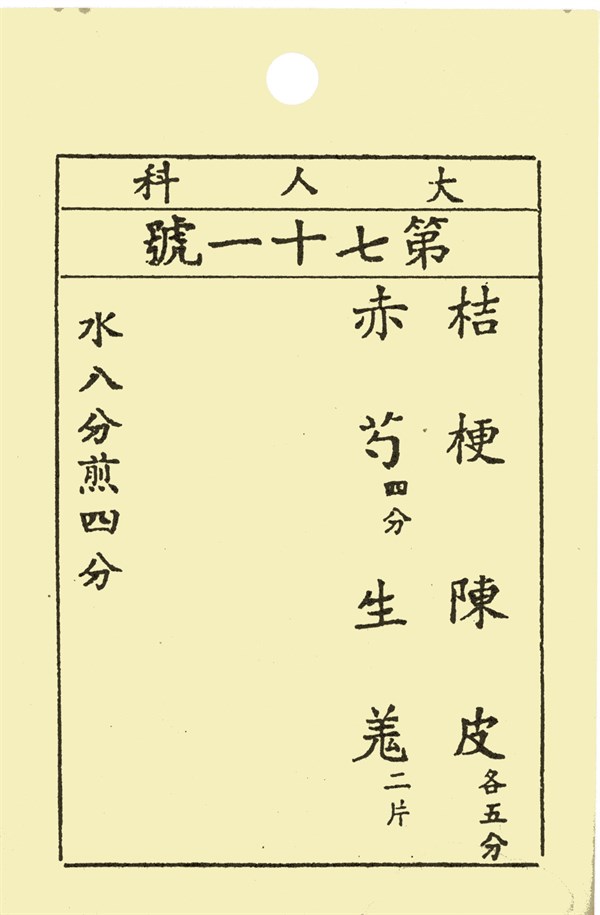 大人科
第七十一號
桔梗 陳皮各五分
赤芍四分 生羗二片
水八分煎四分